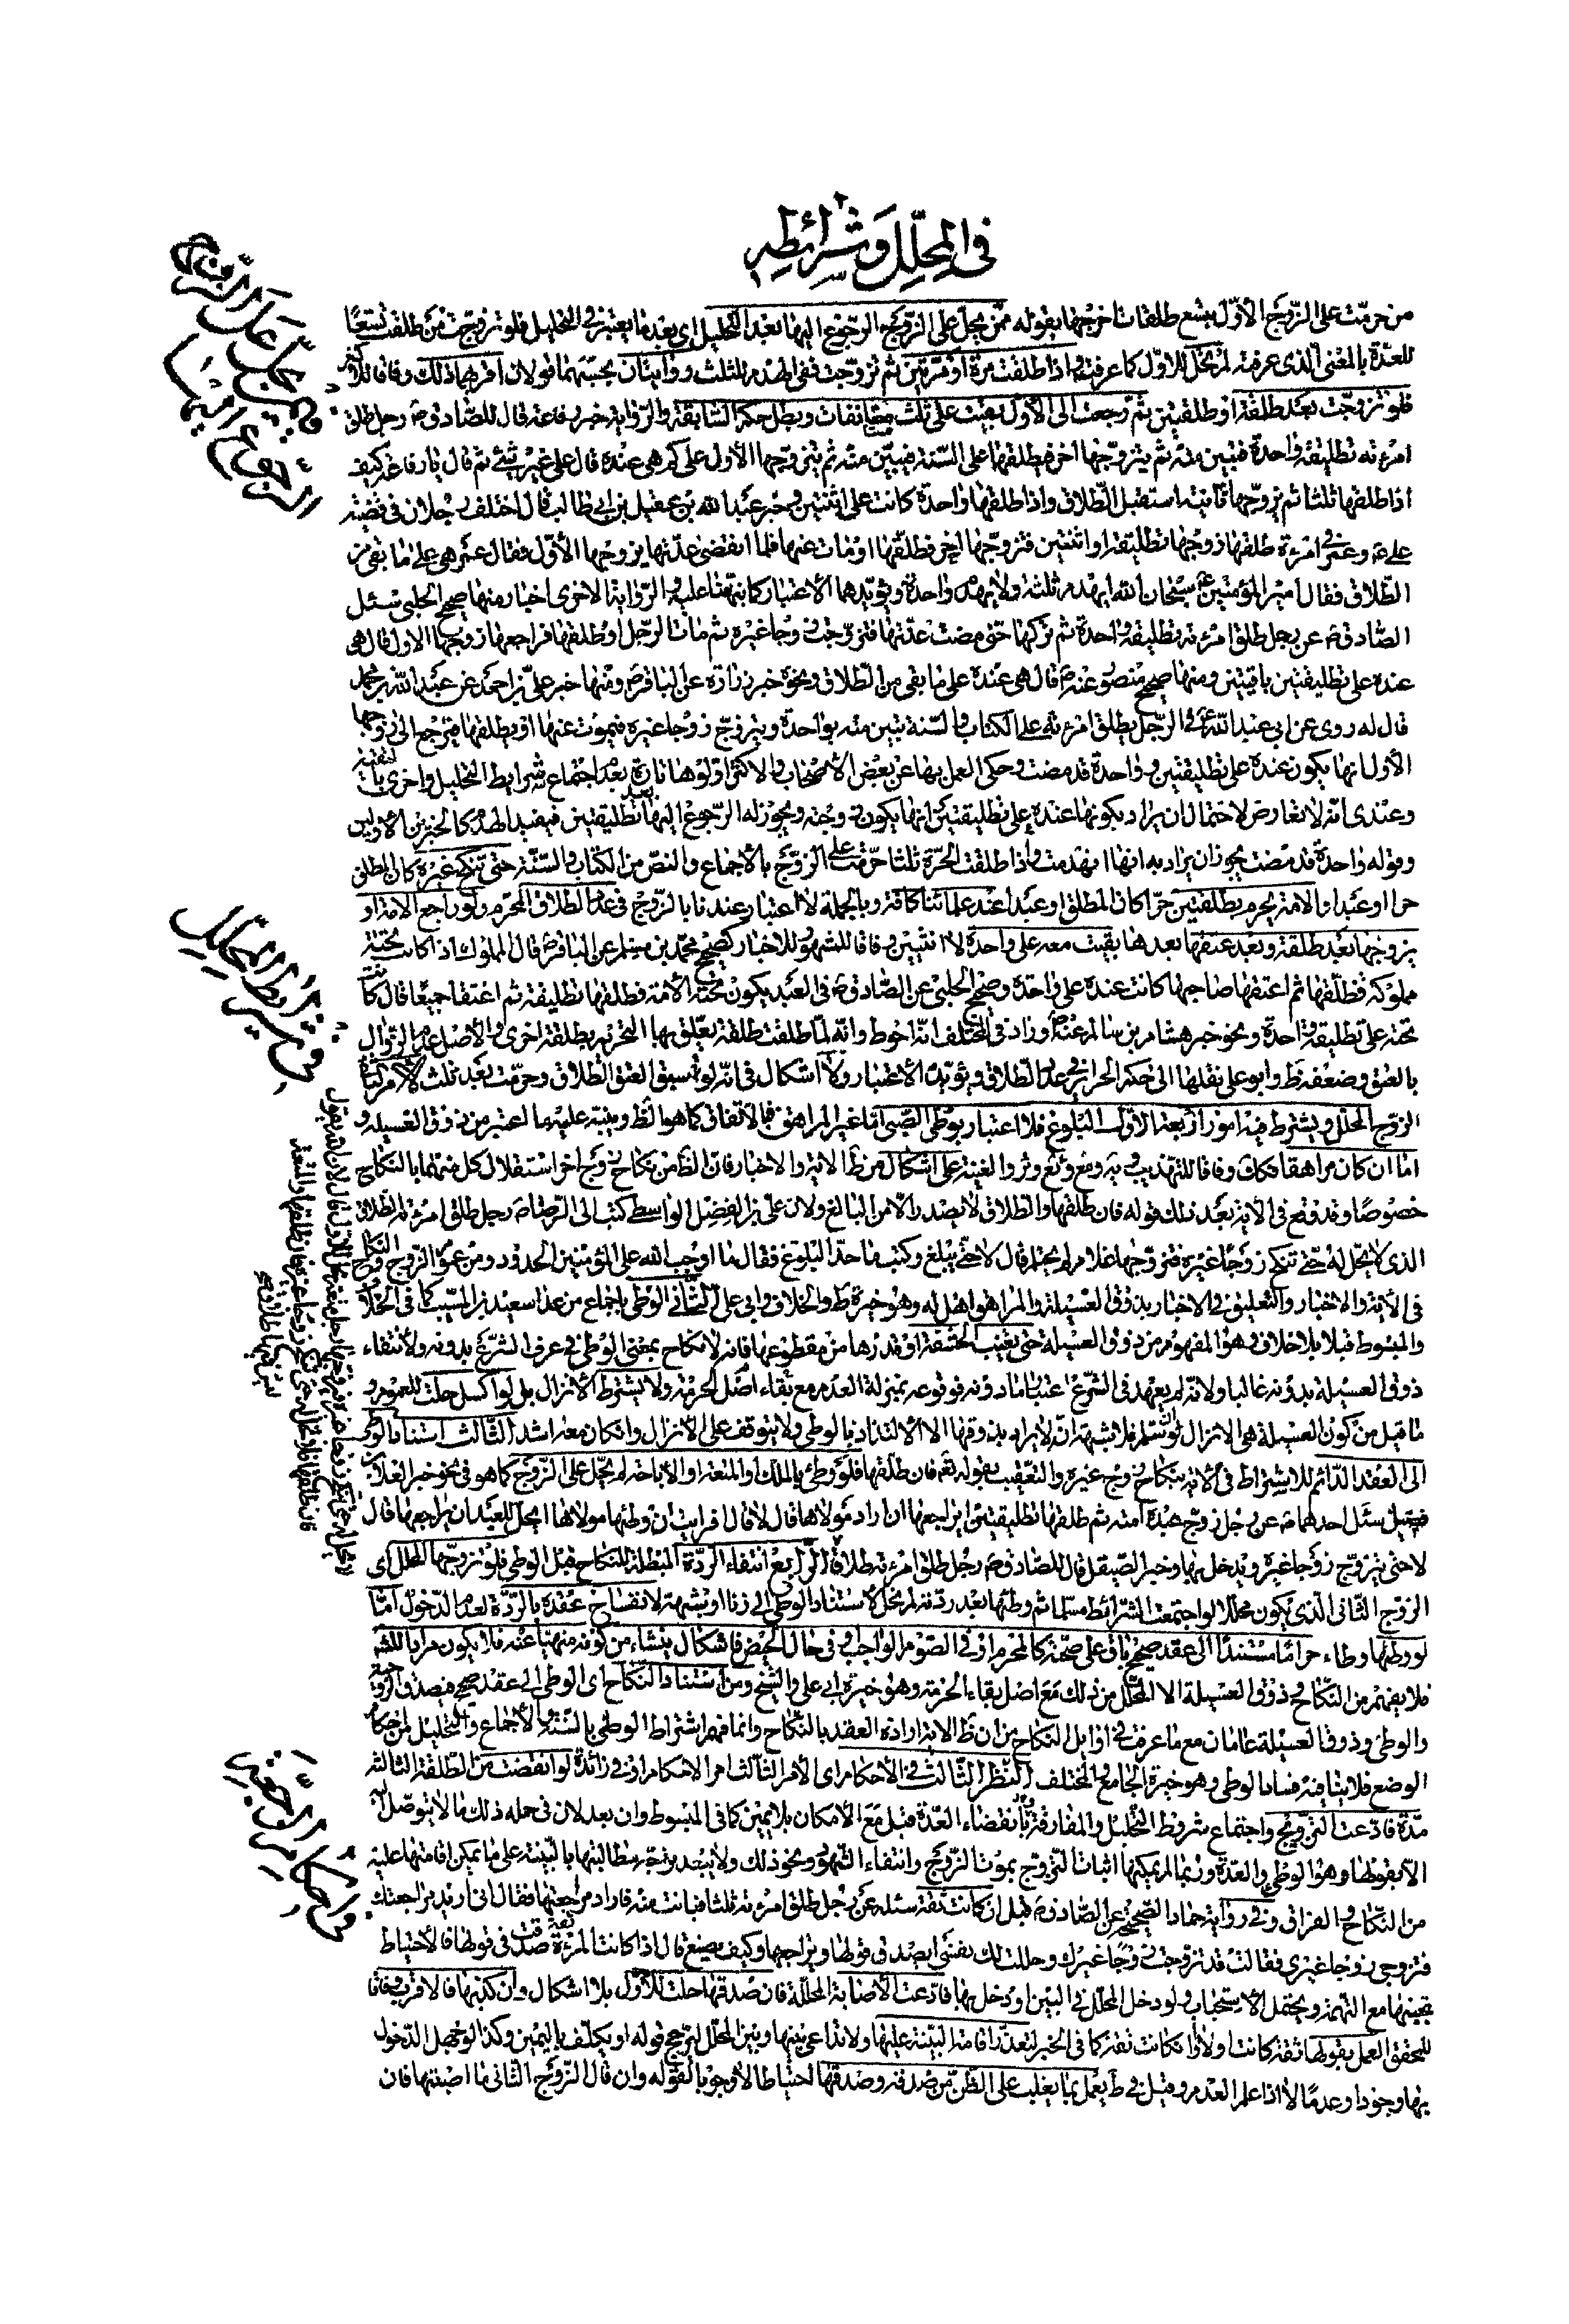 في المحلل وشرائطه
من حرمت على الزوج الأول بتسع طلقات اخرجها بقوله ممن يحل على الزوج الرجوع اليها بعد التحليل اى بعد ما يعتبر في التحليل فلو تزوجت من طلقت تسعا
للعدة بالمعنى الذى عرفته لم تحل للاول كما عرفت واذا طلقت مرة او مرتين ثم تزوجت ففى الهدم للثلث روايتان بحسبهما قولان اقربهما ذلك وفاقا للاكثر
فلو تزوجت بعد طلقة او طلقتين ثم رجعت الى الأول بقيت على ثلث مستانفات وبطل حكم السابقة والرواية خبر رفاعة قال للصادق ع رجل طلق
امرءته تطليقة واحدة فتبين منه ثم يتزوجها اخر فيطلقها على السنة فتبين منه ثم يتزوجها الأول على كم هى عنده قال على غير شئ ثم قال يا رفاعة كيف
اذا طلقها ثلثا ثم تزوجها ثانية استقبل الطلاق واذا طلقها واحدة كانت على اثنتين وخبر عبد الله بن عقيل بن ابي طالب قال اختلف رجلان في قضية
على ع وعمر في امرءة طلقها زوجها تطليقة او اثنتين فتزوجها اخر فطلقها او مات عنها فلما انقضى عدتها تزوجها الأول فقال عمر هى على ما بقى من
الطلاق فقال امير المؤمنين ع سبحان الله ايهدم ثلثة ولا يهدم واحدة ويؤيدهما الاعتبار كما نبهنا عليه والرواية الاخرى اخبار منها صحيح الحلبي سئل
الصادق ع عن رجل طلق امرءته تطليقة واحدة ثم تركها حتى مضت عدتها فتزوجت زوجا غيره ثم مات الرجل او طلقها فراجعها زوجها الاول قال هى
عنده على تطليقتين باقيتين ومنها صحيح منصور عنه ع قال هى عنده على ما بقى من الطلاق ونحوه خبر زرارة عن الباقر ع ومنها خبر على بن احمد عن عبد الله بن محمد
قال له روى عن ابي عبد الله ع في الرجل يطلق امرءته على الكتاب والسنة فتبين منه بواحدة وتتزوج زوجا غيره فيموت عنها او يطلقها فترجع الى زوجها
الأول انها يكون عنده على تطليقتين وواحدة قد مضت وحكى العمل بها عن بعض الأصحاب والاكثر اولوها تارة بعدم اجتماع شرايط التحليل واخرى بالتقية
وعندى انه لا تعارض لاحتمال ان يراد بكونها عنده على تطليقتين انها يكون زوجته ويجوز له الرجوع اليها بعد تطليقتين فيفيد الهدم كالخبرين الاولين
وقوله واحدة قد مضت يجوز ان يراد به انها انهدمت واذا طلقت الحرة ثلثا حرمت على الزوج بالأجماع والنص من الكتاب والسنة حتى تنكح غيره كان المطلق
حرا او عبدا والامة يحرم بطلقتين حرا كان المطلق او عبدا عند علمائنا كافة وبالجملة لا اعتبار عندنا بالزوج في عدد الطلاق المحرم ولو راجع الامة او
تزوجها بعد طلقة وبعد عتقها بعدها بقيت معه على واحدة لا اثنتين وفاقا للمشهور للاخبار كصحيح محمد بن مسلم عن الباقر ع قال المملوك اذا كانت تحته
مملوكة فطلقها ثم اعتقها صاحبها كانت عنده على واحدة وصحيح الحلبى عن الصادق ع في العبد يكون تحته الأمة فطلقها تطليقة ثم اعتقا جميعا قال كانت
تحته على تطليقة واحدة ونحو خبر هشام بن سالم عنه ع وزاد في المختلف انه احوط وانه لما طلقت طلقة تعلق بها التحريم بطلقة اخرى والأصل عدم الزوال
بالعتق وضعفه ظ وابو على نقلها الى حكم الحرائر في عدد الطلاق ويؤيده الأعتبار ولا اشكال في انه لو سبق العتق الطلاق وحرمت بعد ثلث
الزوج المحلل ويشترط فيه امور اربعة الأول البلوغ فلا اعتبار بوطى الصبى اما غير المراهق فبالاتفاق كما هو الظ وينبه عليه ما اعتبر من ذوق العسيلة و
اما ان كان مراهقا فكك وفاقا للتهذيب ويه وفع ئع وثر والغنية على اشكال من ظ الاية والاخبار فان الظ من نكاح زوج اخر استقلال كل منهما بالنكاح
خصوصا وقد وقع في الأية بعد ذلك قوله فان طلقها والطلاق لا يصدر الا من البالغ ولان على بن الفضل الواسطى كتب الى الرضا ع رجل طلق امرءته الطلاق
الذى لا يحل له حتى تنكح زوجا غيره فتزوجها غلام لم يحتلم قال لا حتى يبلغ وكتب ما حد البلوغ فقال ما اوجب الله على المؤمنين الحدود ومن عموم الزوج والنكاح
في الأية والاخبار والتعليق في الاخبار بذوق العسيلة والمراهق اهل له وهو خيرة ط والخلاف وابي على الثاني الوطى باجماع من عدا سعيد بن المسيب كما في الخلاف
والمبسوط قبلا بلا خلاف وهو المفهوم من ذوق العسيلة حتى يغيب الحشفة او قدرها من مقطوعها فانه لا نكاح بمعنى الوطى في عرف الشرع بدونه ولانتفاء
ذوق العسيلة بدونه غالبا ولانه لم يعهد في الشرع اعتبار ما دونه فوقوعه بمنزلة العدم مع بقاء اصل الحرمة ولا يشترط الأنزال بل لو اكسل حلت للعموم و
ما قيل من كون العسيلة هى الانزال لو سلم فلا شبهة انه لا يراد بذوقها الا الالتذاذ بالوطى ولا يتوقف على الانزال وان كان معه اشد الثالث استناد الوطى
الى العقد الدائم للاشتراط في الاية بنكاح زوج غيره والتعقيب بقوله تعم فان طلقها فلو وطئ بالملك او المتعة او الاباحة لم يحل على الزوج كما هو في نحو خبر الفضلا
فضيل سئل احدهما ع عن رجل زوج عبده امته ثم طلقها تطليقتين ايراجعها ان اراد مولاها قال لا قال افرايت ان وطئها مولاها ايحل للعبد ان يراجعها قال
لا حتى يتزوج زوجا غيره ويدخل بها وخبر الصيقل قال للصادق ع رجل طلق امرءته طلاقا الرابع انتفاء الردة المبطلة للنكاح قبل الوطى فلو تزوجها المحلل اى
الزوج الثانى الذى يكون محللا لو اجتمعت الشرائط مسلما ثم وطئها بعد ردته لم تحل لاستناد الوطى الى زنا او شبهة لانفساخ عقده بالردة لعدم الدخول اما
لو وطئها وطاء حراما مستندا الى عقد صحيح باق على صحته كالمحرم او في الصوم الواجب او في حال الحيض فاشكال ينشاء من كونه منهيا عنه فلا يكون مرادا للشه
فلا يفهم من النكاح وذوق العسيلة الا المحلل من ذلك مع اصل بقاء الحرمة وهو خيرة ابي على والشيخ ومن استناد النكاح اى الوطى الى عقد صحيح فيصدق الزوج
والوطى وذوق العسيلة عامان مع ما عرفت في اوايل النكاح من ان ظ الاية ارادة العقد بالنكاح وانما فهم اشتراط الوطى بالسنة والأجماع والتحليل من احكام
الوضع فلا ينافيه فساد الوطى وهو خيرة الجامع والمختلف النظر الثالث في الأحكام اى الأمر الثالث امر الاحكام او في زائدة لو انقضت من الطلقة الثالثة
مدة فادعت التزويج واجتماع شروط التحليل والمفارقة وانقضاء العدة قبل مع الأمكان بلا يمين كما في المبسوط وان بعد لان في جملة ذلك ما لا يتوصل اليه
الا بقولها وهو الوطى والعدة وربما لم يمكنها اثبات التزوج بموت الزوج وانتفاء الشهود ونحو ذلك ولا يبعد توجه مطالبتها بالبينة على ما يمكن اقامتها عليه
من النكاح والفراق وفي رواية حماد الصحيح عن الصادق ع قبل ان كانت ثقة سئله عن رجل طلق امرءته ثلثا فبانت منه فاراد مراجعتها فقال انى اريد مراجعتك
فتزوجى زوجا غيرى فقالت قد تزوجت زوجا غيرك وحللت لك نفسى ايصدق قولها ويراجعها وكيف يصنع قال اذا كانت المرءة ثقة صدقت في قولها فالأحتياط
تجنبها مع التهمة ويحتمل الاستحباب ولو دخل المحلل في البين ودخل بها فادعت الأصابة المحللة فان صدقها حلت للأول بلا اشكال وان كذبها فالاقرب وفاقا
للمحقق العمل بقولها ثقة كانت اولا اذا كانت ثقة كما في الخبر لتعذر اقامة البينة عليها ولا تداعى بينها وبين المحلل لترجح قوله او يكلف باليمين وكذا لو حصل الدخول
بها وجودا وعدما الا اذا علم العدم وقيل في ط يعمل بما يغلب على الظن من صدقه وصدقها احتياطا لا وجوبا لقوله وان قال الزوج الثانى ما اصبتها فان
في شرائط المحلل
في احكام الرجعة